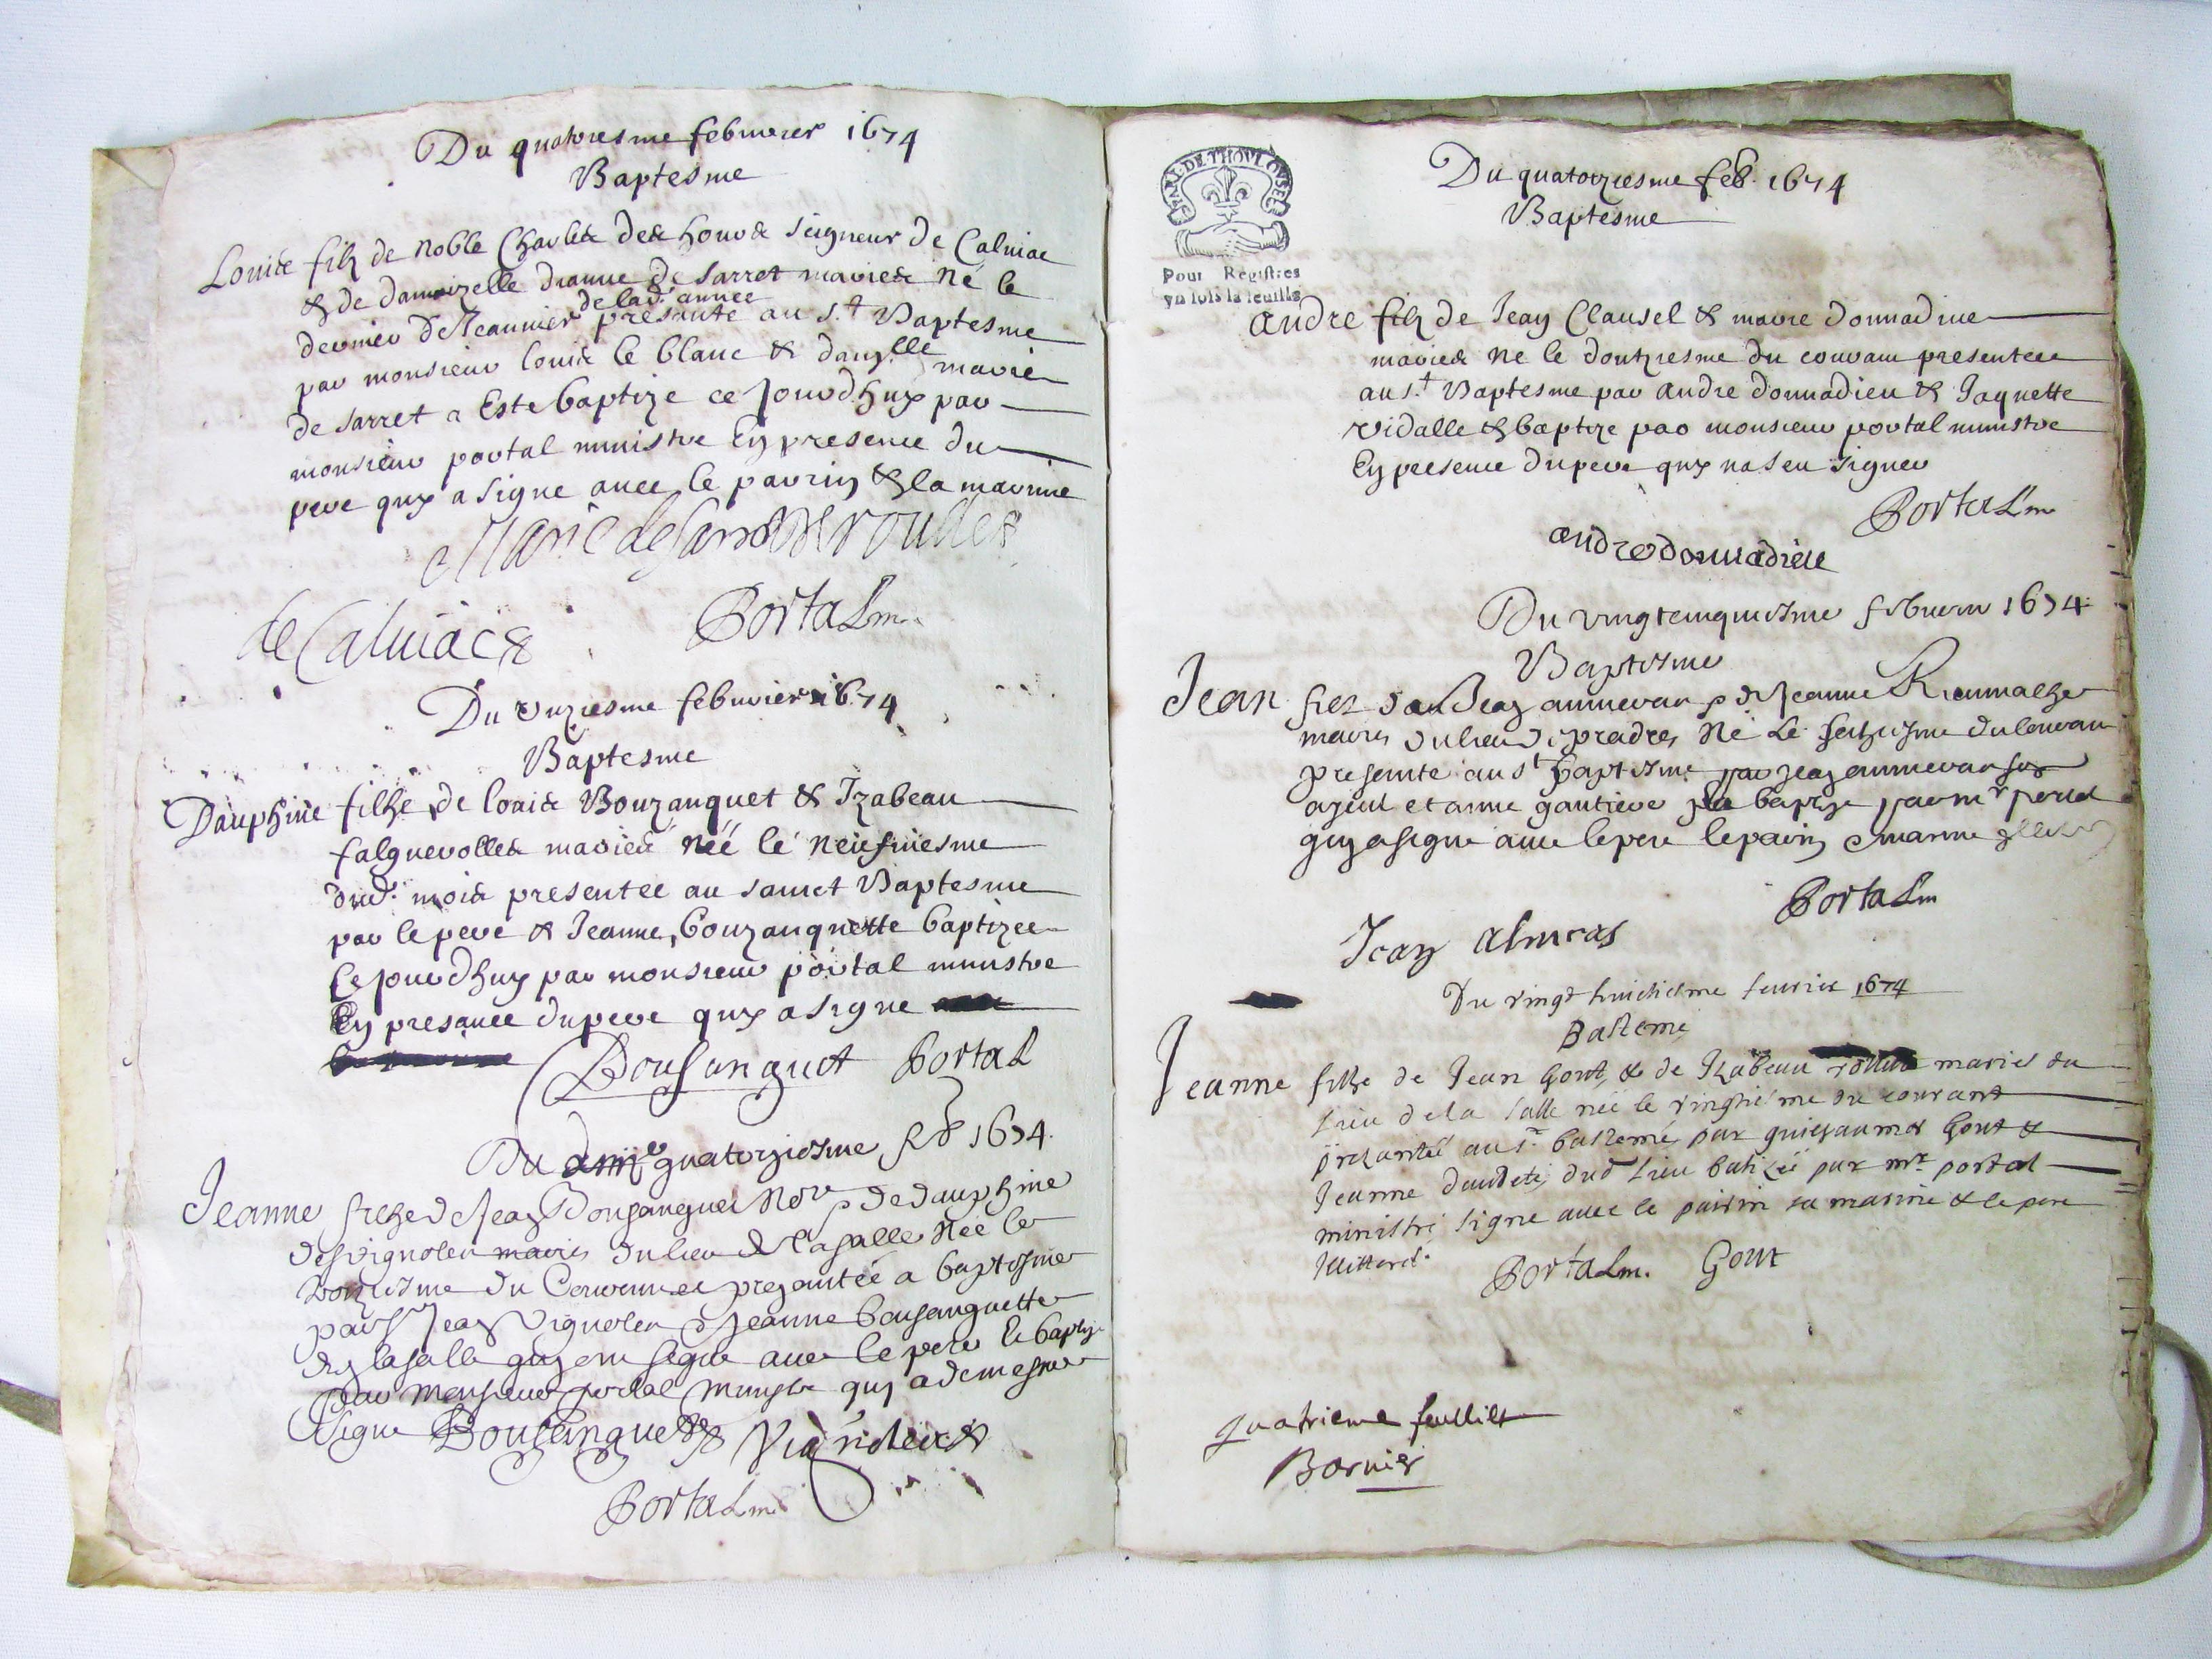 Du quatoresme febvrier 1674
Baptesme
Louis filz de noble Charles des hours seigneur de Calviac
& de damoizelle dianne de sarret maries né le
dernier de Jeanvier de lad. annee presante au s.t Baptesme
par monsieur louis le blanc & damlle marie
de sarret a Este baptize ce jourdhuy par
monsieur portal ministre En presence du
pere quy a signe avec le parrin & la marrine
Marie de Sarret
de Calviac
Portal m.
Du unziesme febvrier 1674
Baptesme
Dauphine filhe de louis Bouzanquet & Izabeau
falguerolles maries née le neufviesme
dud. mois presentee au sainct Baptesme
par le pere & Jeanne bouzanquette baptizee
Ce jourdhuy par monsieur portal ministre
En presance du pere quy a signe
Bousanquet Portal
Du quatorziesme feb 1674
Jeanne filhe de Jean Bousanquet no.re & de dauphine
desvignoles maries du lieu de lasalle née le
du Courant presantée a baptesme
par s.r Jean Vignoles & Jeanne bousanquette
de lasalle quy ont signe avec le pere Et baptize
par Monsieur portal ministre quy a de mesme
signe Bousanquet Vignoles
Portal m.
GNAL DE THOULOUSE
Pour Registres
vn sols la feuille
Du quatorziesme feb. 1674
Baptesme
andre filz de Jean Clausel & marie donnadive
maries ne le doutziesme du couvant presentee
au s.t Baptesme par andre donnadieu & Jaquette
vidalle & baptize par monsieur portal ministre
En presence du pere quy na seu signer
Portal m.
andre donnadieu
Du vingtcinquiesme febvrier 1674
Baptesme
Jean filz de Jean & de Jeanne
maries du lieu de pradres né le setziesme du couvant
presante au s.t baptesme par Jean
ayeul et anne gautiere baptize par m.r portal
quy a signe avec le pere le parin
Portal m
Jean almeras
Du vingt huictiesme fevrier 1674
Basteme
Jeanne filhe de Jean Gout & de Izabeau maries du
lieu de la salle née le vingtiesme du courant
prezantée au s.t basteme par guilhaumes Gout &
Jeanne dud lieu batizée par m.r portal
ministre signe avec le pairin la marine & le pere
Portal m. Gout
quatrieme feullet
Bornier